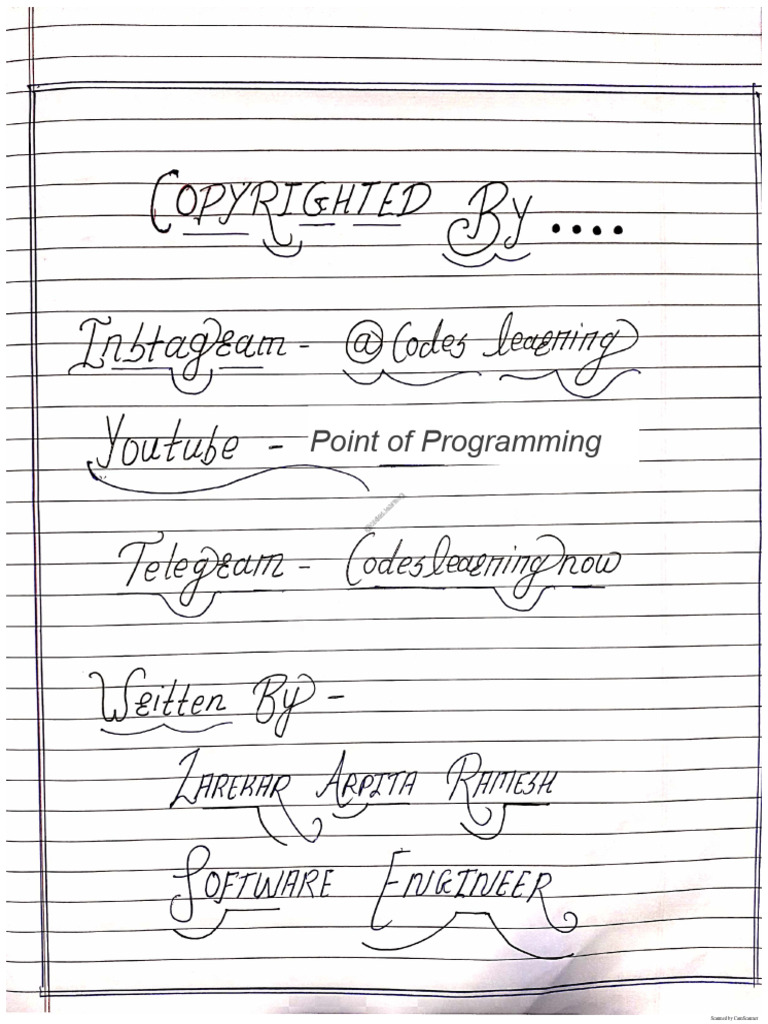 COPYRIGHTED By ....
Instagram - @Codes learning
Youtube - Point of Programming
Telegram - Codeslearningnow
Written By -
ZAREKAR ARPITA RAMESH
SOFTWARE ENGINEER
Scanned by CamScanner